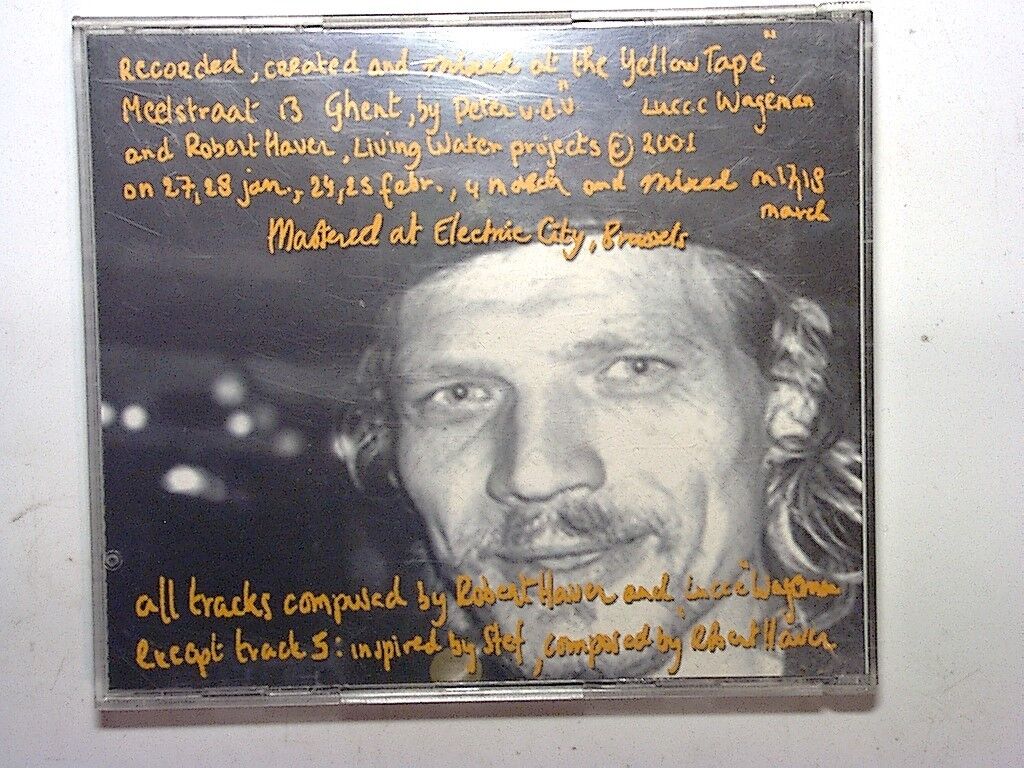 Recorded, created and mixed at the Yellow Tape"
Meelstraat 13 Ghent, by Peter v.d.V Luccc Wageman
and Robert Haver, Living Water projects © 2001
on 27, 28 jan., 24, 25 febr., 4 march and mixed on 17, 18
march
Mastered at Electric City, Brussels
all tracks composed by Robert Haver and Luccc Wageman
Except track 5: inspired by Stef, composed by Robert Haver